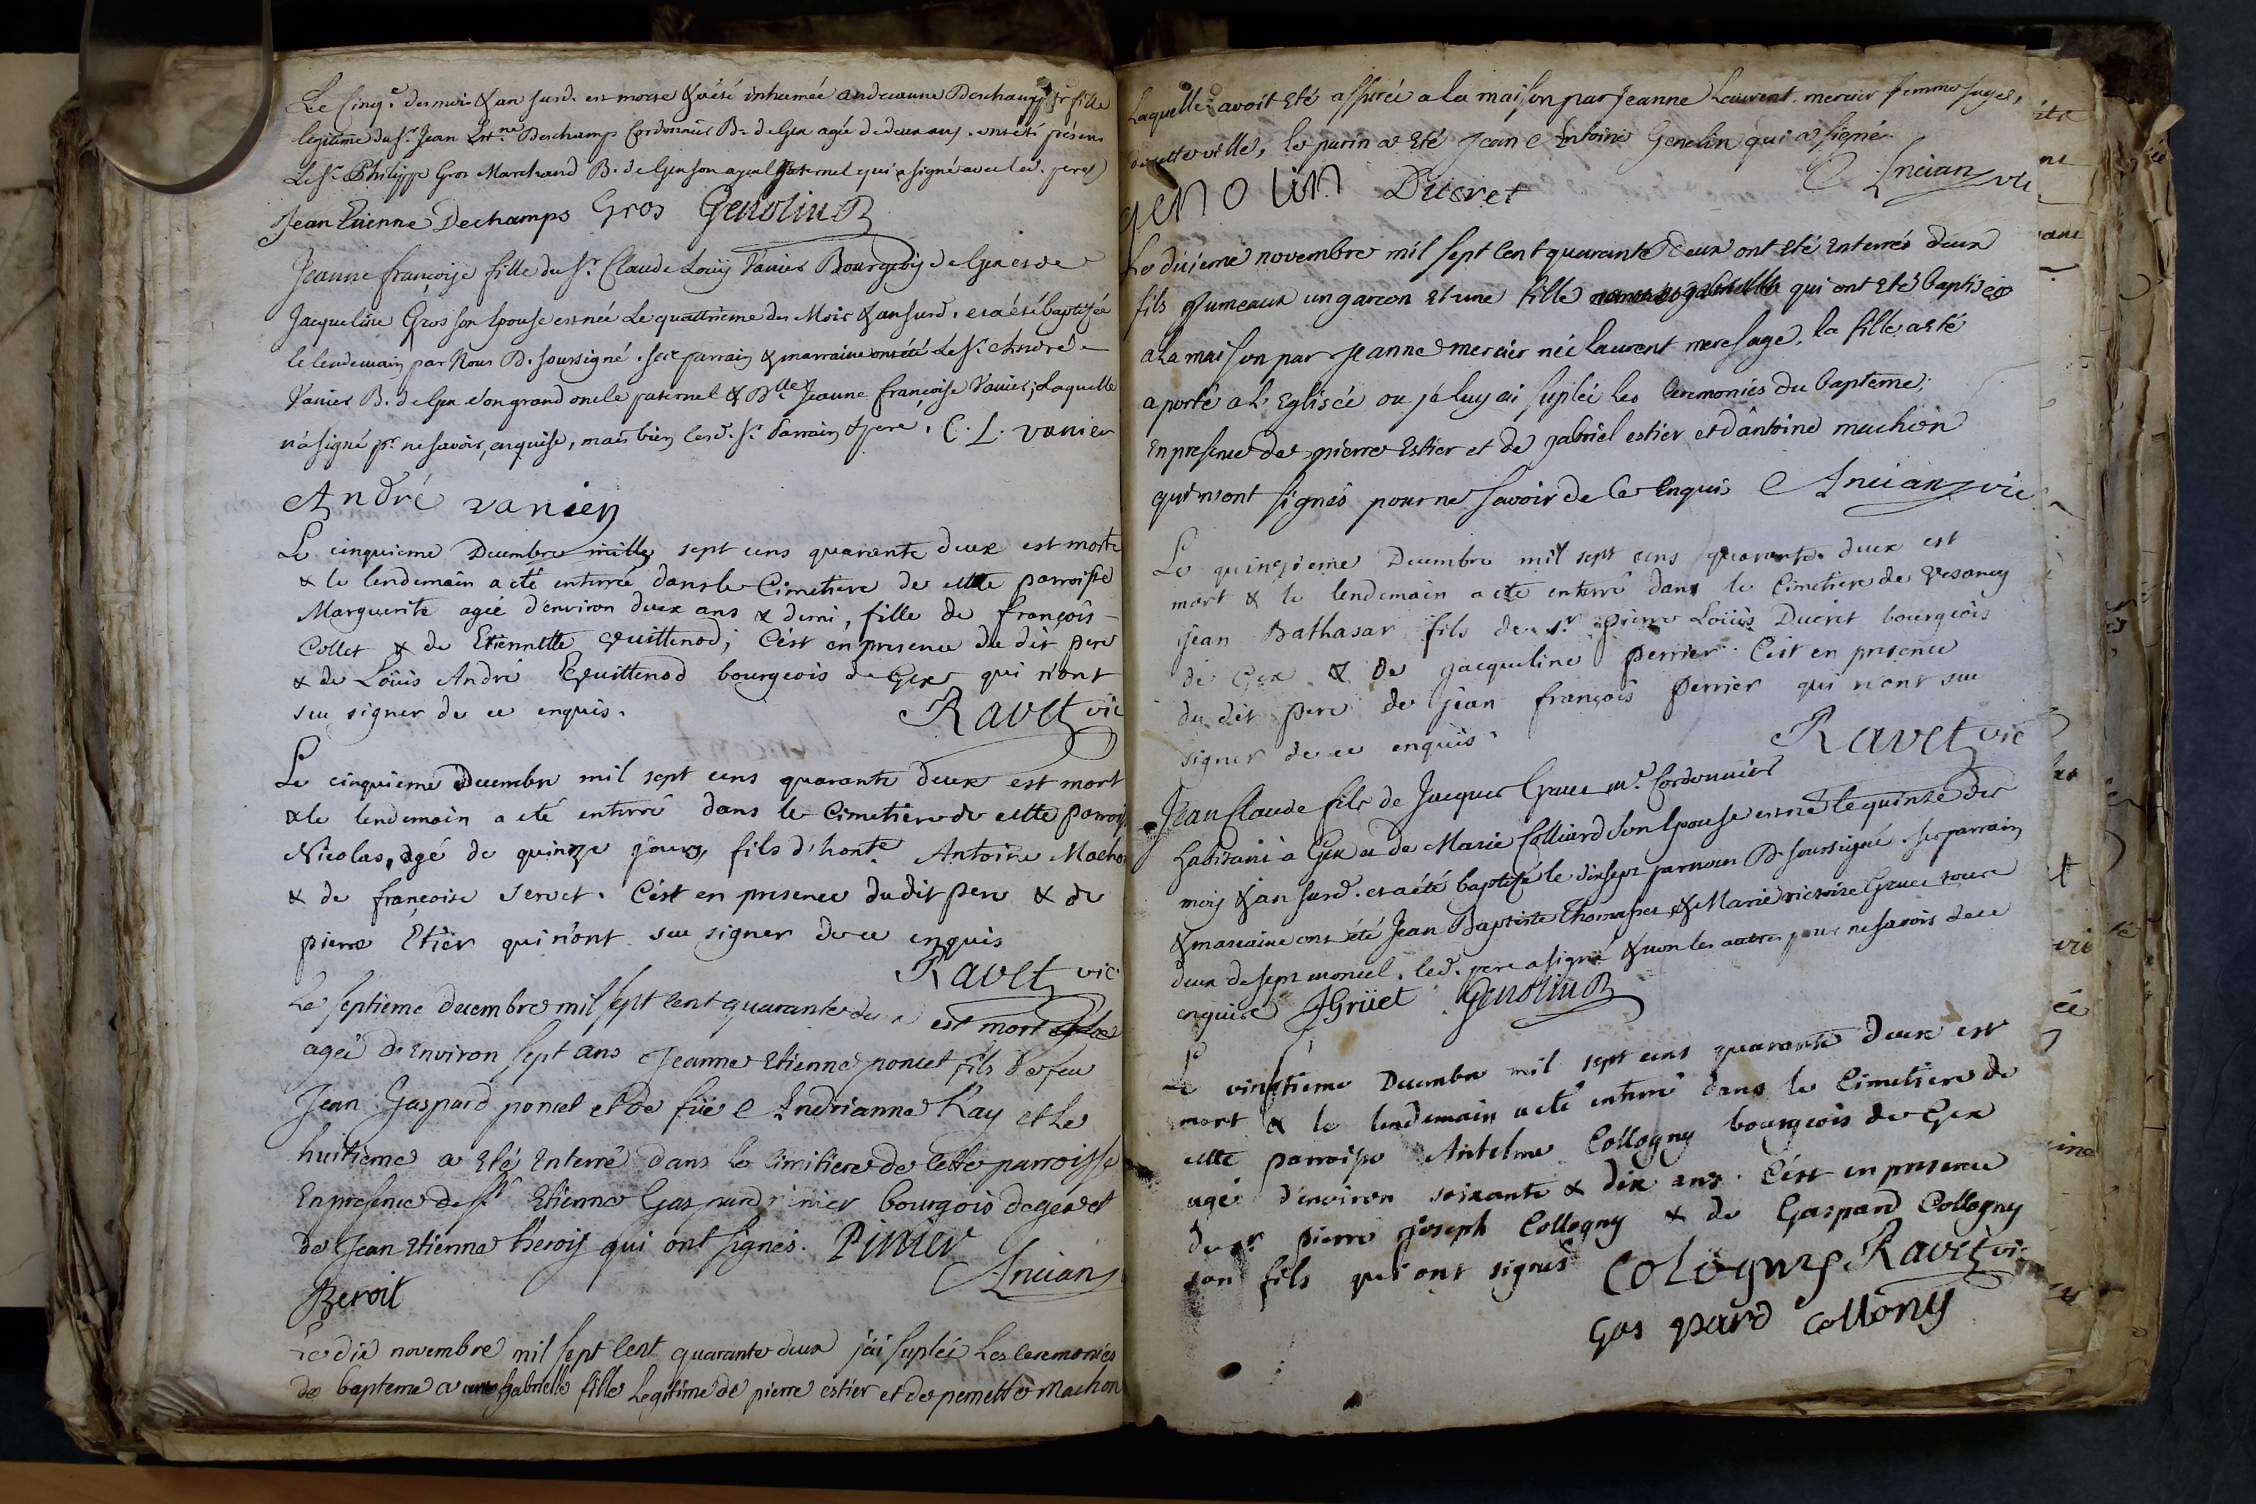 Le Cinqe. des mois & an susd. est morte & a été inhumée andreanne Deschamps fille
legitime du Sr. Jean Etne Deschamps Cordonnier B. de Gex agée de deux ans. ont été présens
Le Sr. Philippe Gros Marchand B. de Gex son ayeul maternel qui a signé avec led. pere
Jean Etienne Dechamps Gros Genolin B
Jeanne françoise fille du Sr. Claude Louis Vanier Bourgeois de Gex et de
Jacqueline Gros son Epouse est née Le quattrieme des Mois & an susd. et a été baptisée
le lendemain par Nous B. soussigné. ses parrain & marraine ont été Le Sr. André
Vanier B. de Gex son grand oncle paternel & Dlle Jeanne françoise Vanier; Laquelle
n'a signé pr. ne savoir, enquise, mais bien lesd. Sr. Parrain & pere. C. L. vanier
André vanier
Le cinquieme Decembre mille sept cens quarante deux est morte
& le lendemain a eté enterrée dans le Cimetiere de cette parroisse
Marguerite agée d'environ deux ans & demi, fille de françois
Collet & de Etiennette Quittenod; C'est en presence du dit pere
& de Loüis André Quittenod bourgeois de Gex qui n'ont
sçu signer de ce enquis.
Ravet vic
Le cinquieme Decembre mil sept cens quarante deux est mort
& le lendemain a eté enterré dans le Cimetiere de cette parroisse
Nicolas, agé de quinze jours, fils d'honte. Antoine Machon
& de françoise servet. C'est en presence dudit pere & de
pierre Etier qui n'ont sçu signer de ce enquis
Ravet vic
Le septieme decembre mil sept cent quarante deux est mort
ageé d'Environ sept ans Jeanne Etienne poncet fils de feu
Jean Gaspard poncet et de füe Andrianne Ray et Le
huitieme a Eté Enterré dans le cimitiere de Cette parroisse
En presence de Sr Etienne Gaspard pinier bourgois de gex et
de Jean Etienne Beroit qui ont signés. Pinier
Ancian
Beroit
Le dix novembre mil sept Cent quarante deux j'ai supleé Les Ceremonies
de bapteme a Gabrielle fille Legitime de pierre estier et de pernette Machon
Laquelle avoit Eté assurée a la maison par Jeanne Laurent mercier femme sage,
de cette ville, le parin a Eté Jean Antoine Genolin qui a signé
Ancian vic
genolin Ducret
Le dixieme novembre mil sept Cent quarante Deux ont Eté Enterrés deux
fils Jumeaux un garcon Et une fille qui ont Eté baptisés
a La maison par Jeanne mercier née Laurent mere sage, la fille a eté
aporté a L'Eglisée ou jé luy ai supleé les Ceremoniés du bapteme,
En presence de pierre Estier et de gabriel estier et d'antoine machon
qui n'ont signés pour ne savoir de Ce Enquis Ancian vic
Le quinzieme Decembre mil sept cens quarante deux est
mort & le lendemain a eté enterré dans le Cimetiere de Vesancy
jean Bathasar fils de sr pierre Loüis Ducret bourgeois
de Gex & de jacqueline perrier. C'est en presence
du dit pere de jean françois perrier qui n'ont sçu
signer de ce enquis.
Ravet vic
Jean Claude fils de Jacques Gruet me. Cordonnier
habitant à Gex et de Marie Colliard son Epouse est né le quinze des
mois & an susd. et a été baptisé le dixsept par nous B. soussigné. ses parrain
& maraine ont été Jean Baptiste Thomasset & Marie victoire Gruet tous
deux de sept moncel, led. pere a signé & non les autres pour ne savoir de ce
enquise JGrüet Genolin B
Le vingtieme Decembre mil sept cens quarante deux est
mort & le lendemain a eté enterré dans le Cimetiere de
cette parroisse Antelme Collogny bourgeois de Gex
agé d'environ soixante & dix ans. C'est en presence
de sr pierre joseph Collogny & de Gaspard Collogny
son fils qui ont signés Cologny Ravet vic
Gaspard Collony